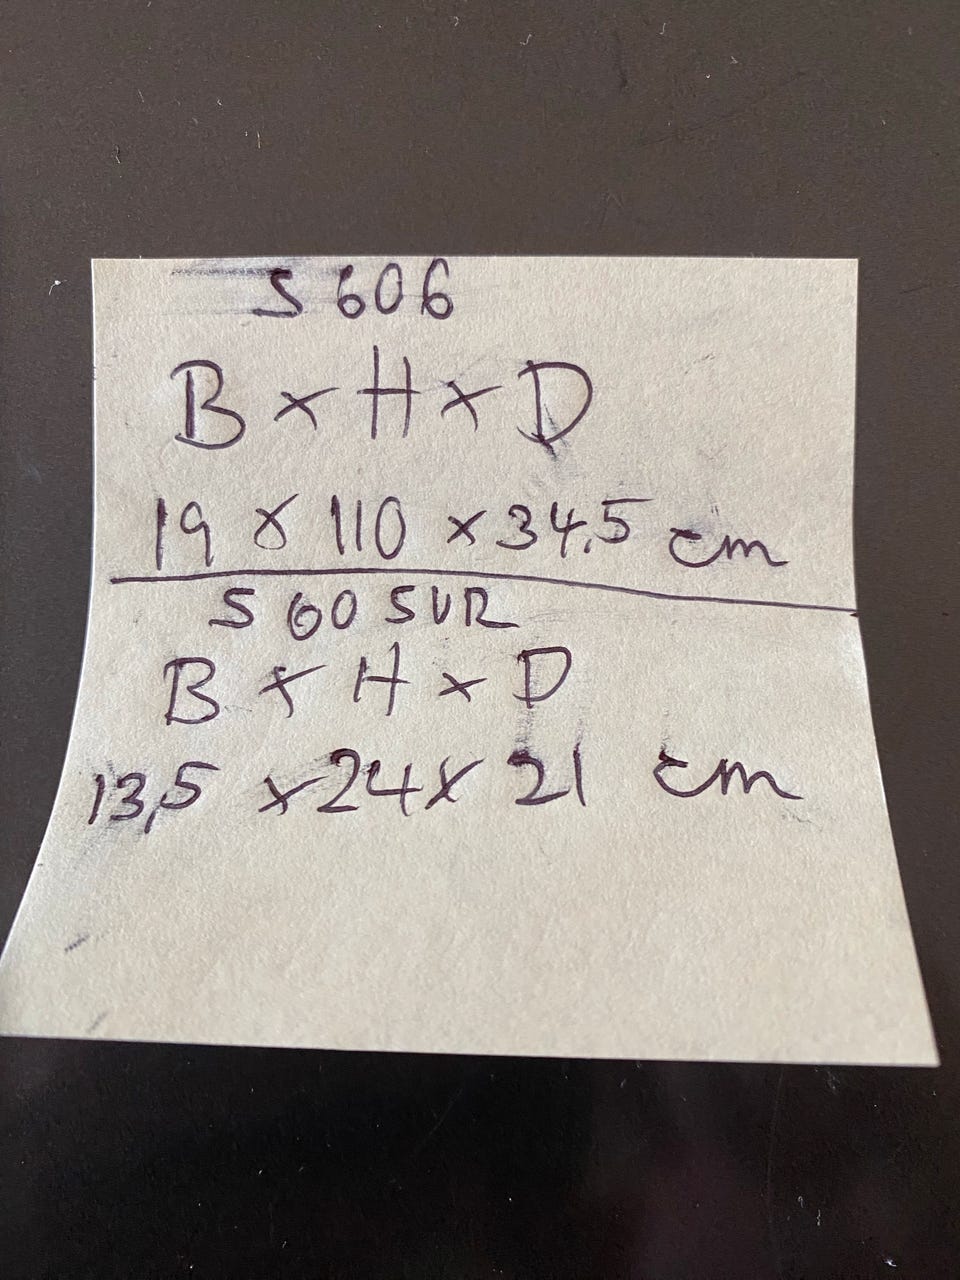 S 606
B x H x D
19 x 110 x 34,5 cm
S 60 SUR
B x H x D
13,5 x 24 x 21 cm